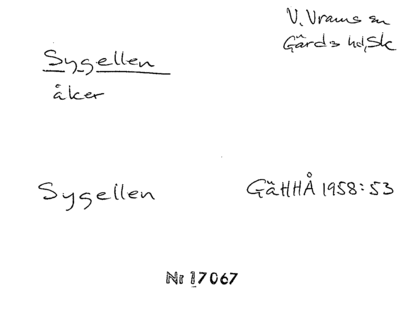 V. Vrams sn
Gärds hd, Sk
Sygellen
åker
Sygellen
GäHHÅ 1958:53
Nr 17067